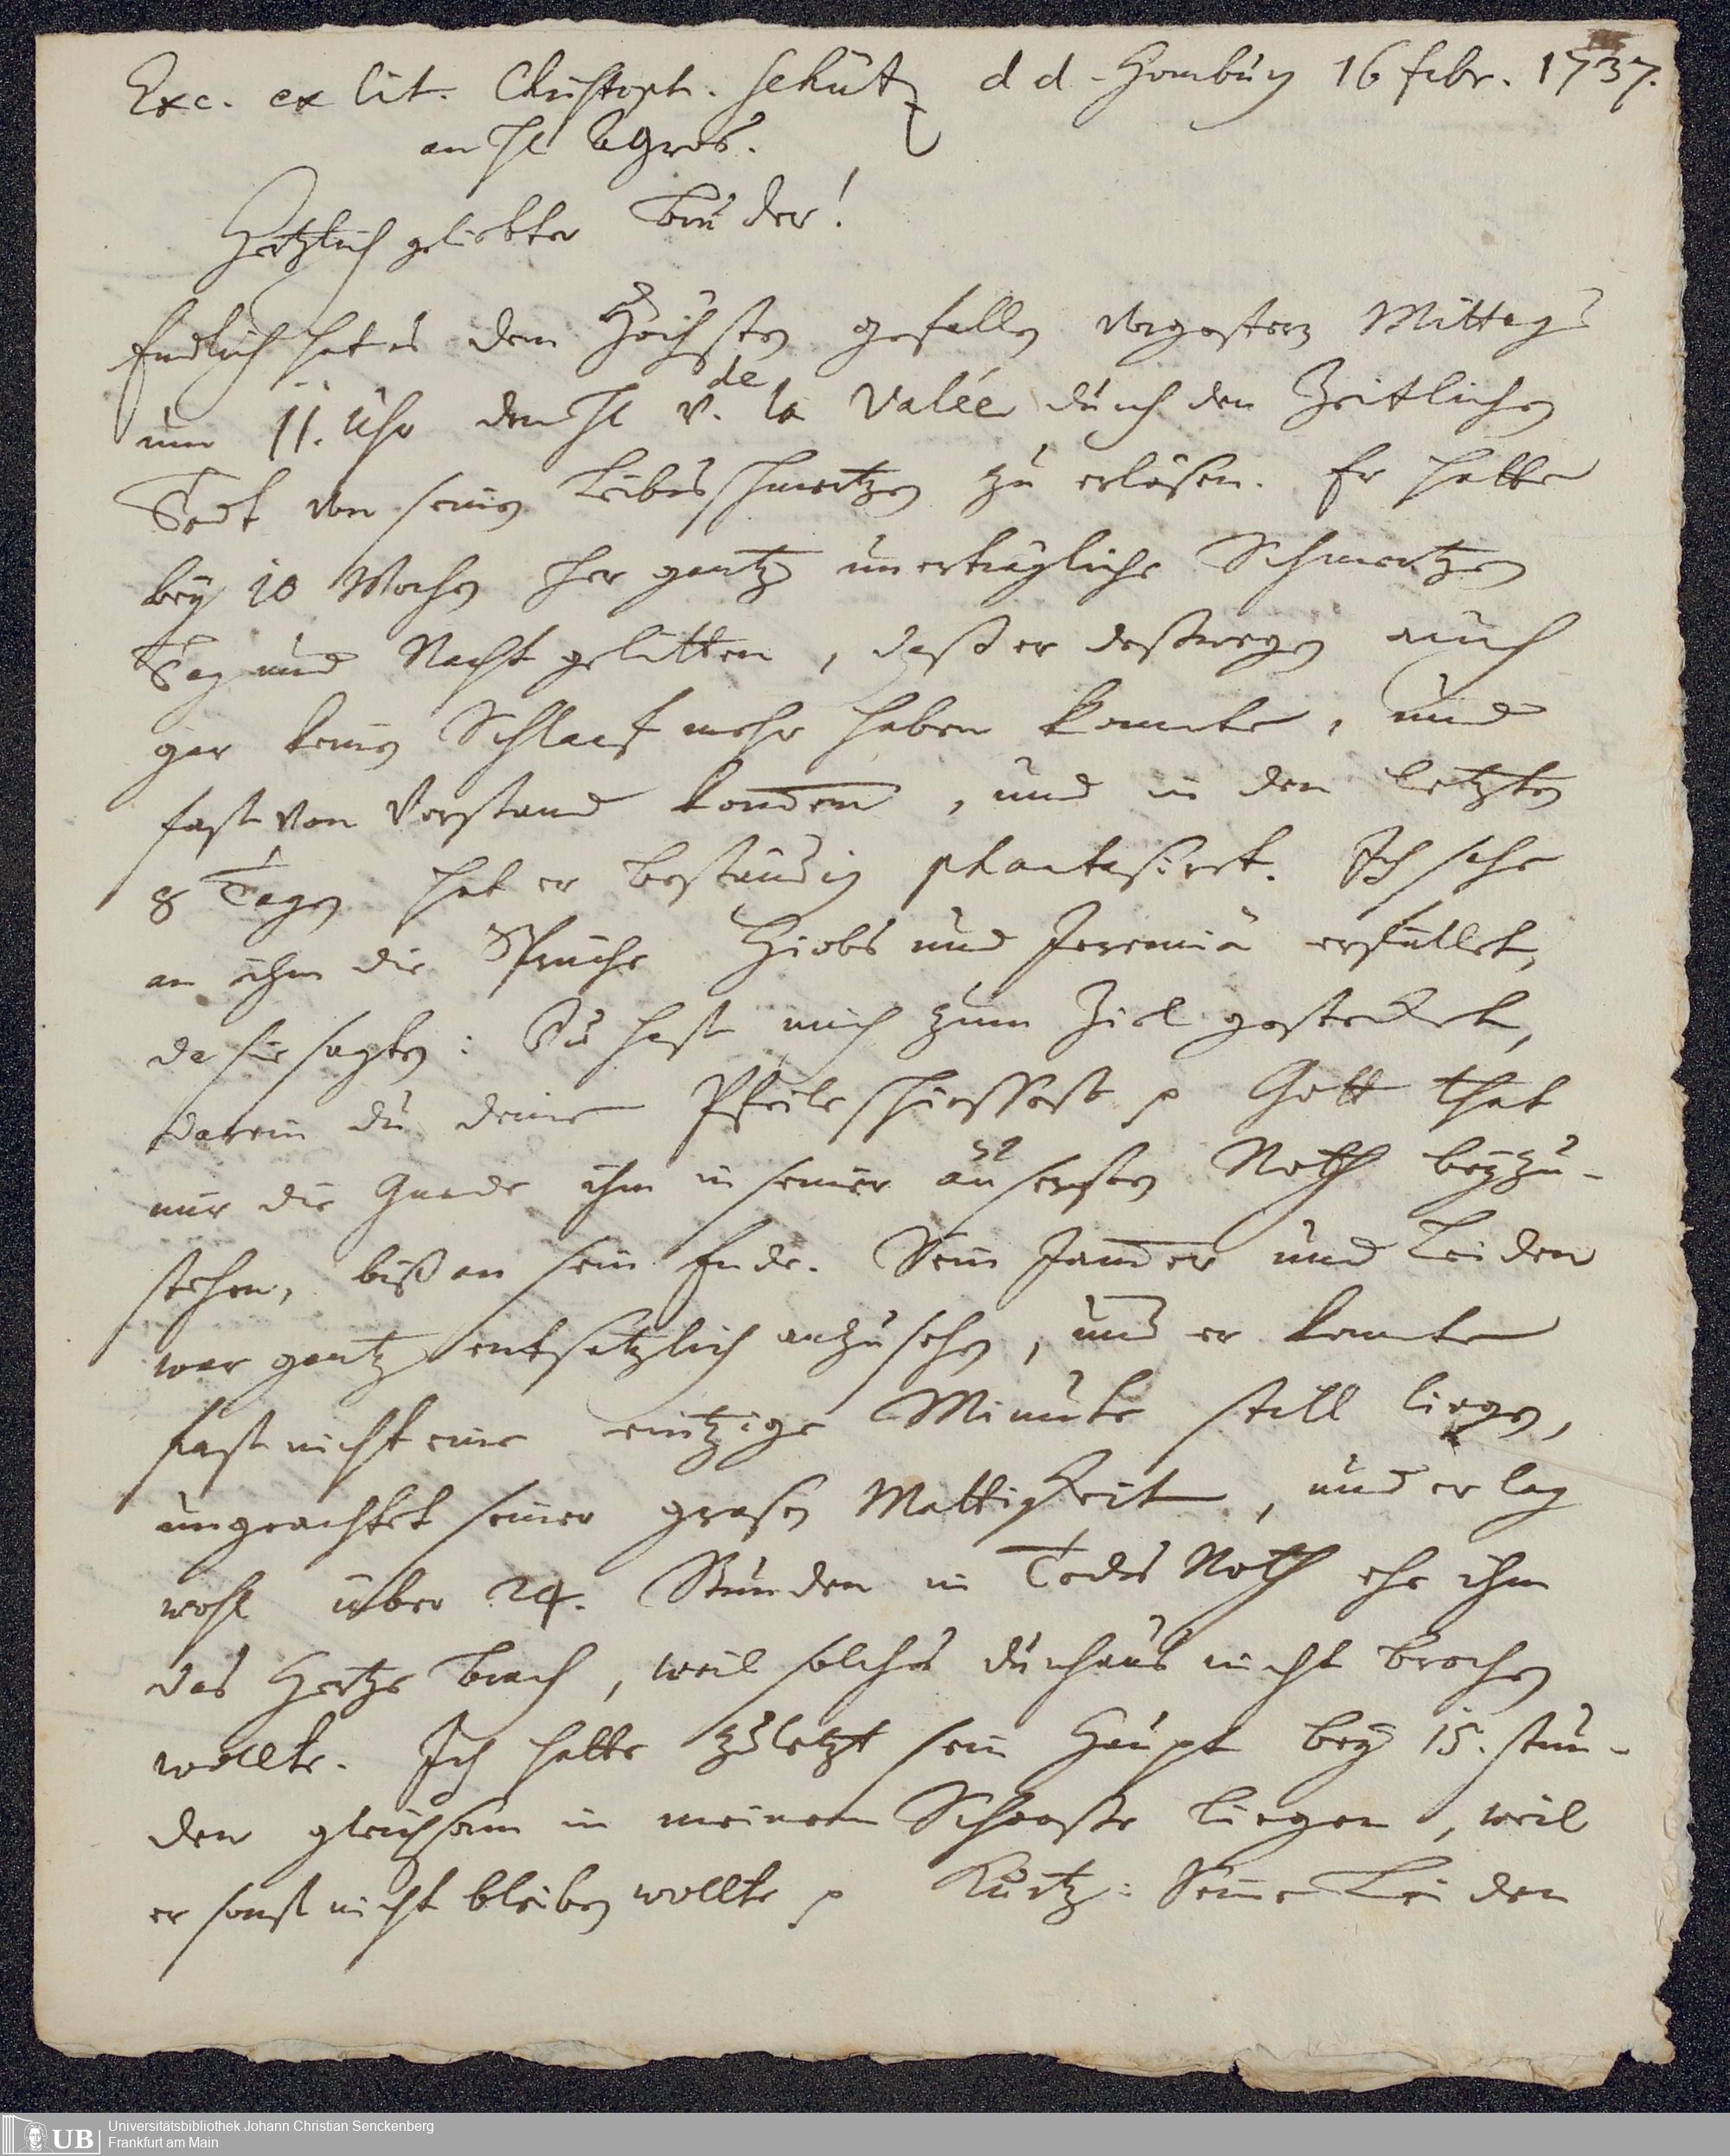 Exc. ex lit. Christoph. Schütz d d. Homburg 16 febr. 1737.
an H. Gros.
Hertzlich geliebter Bruder!
Endlich hat es dem Höchsten gefallen vorgestern Mittags
um 11. Uhr den H. v. de la Valée durch den Zeitlichen
Todt von seinen Leibesschmertzen zu erlösen. Er hatte
bey 10 Wochen her gantz unerträgliche Schmertzen
Tag und Nacht gelitten, daß er deßwegen auch
gar keinen Schlaaf mehr haben konnte, und
fast von Verstand kom̅en, und in den letzten
8 Tagen hat er beständig phantasiret. Ich sehe
an ihm die Sprüche Hiobs und Jeremiä erfüllet,
da sie sagten: Du hast mich zum Ziel gestecket,
darein du deine Pfeile schiessest p Gott that
mir die Gnade ihm in seiner äusersten Noth beyzu-
stehen, biß an sein Ende. Sein Jam̅er und Leiden
war gantz entsetzlich anzusehen, und er konnte
fast nicht eine eintzige Minute still liegen,
ungeachtet seiner grosen Mattigkeit, und er lag
wohl über 24. Stunden in Todes Noth ehe ihm
das Hertze brach, weil solches durchaus nicht brechen
wollte. Ich hatte zuletzt sein Haupt bey 15. stun-
den gleichsam in meinem Schoosse liegen, weil
er sonst nicht bleiben wollte p Kurtz: Seine Leiden
UB
Universitätsbibliothek Johann Christian Senckenberg
Frankfurt am Main